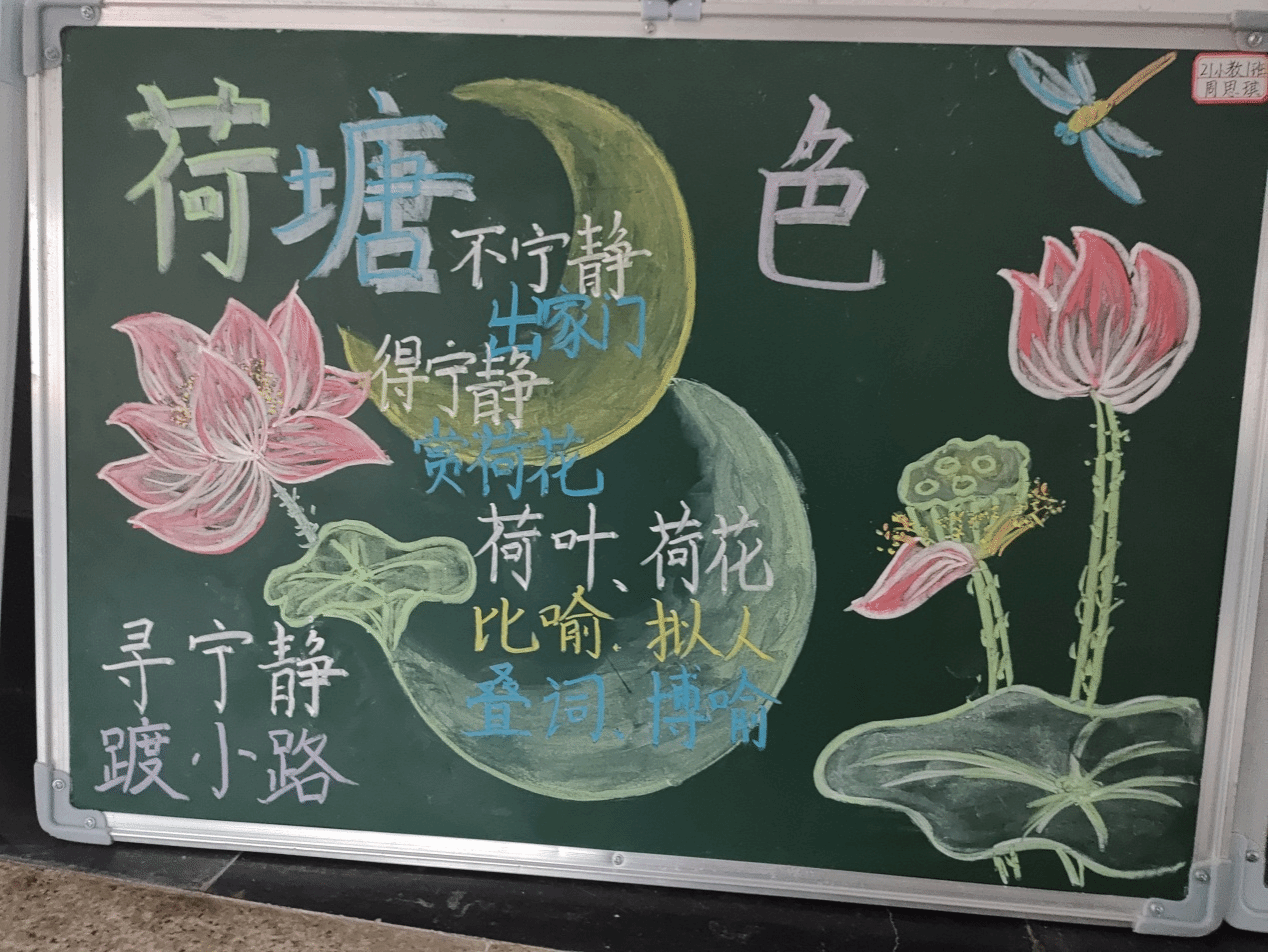 荷塘 色
21小教1班
周思琪
不宁静
出家门
得宁静
赏荷花
荷叶、荷花
比喻、拟人
叠词、博喻
寻宁静
踱小路